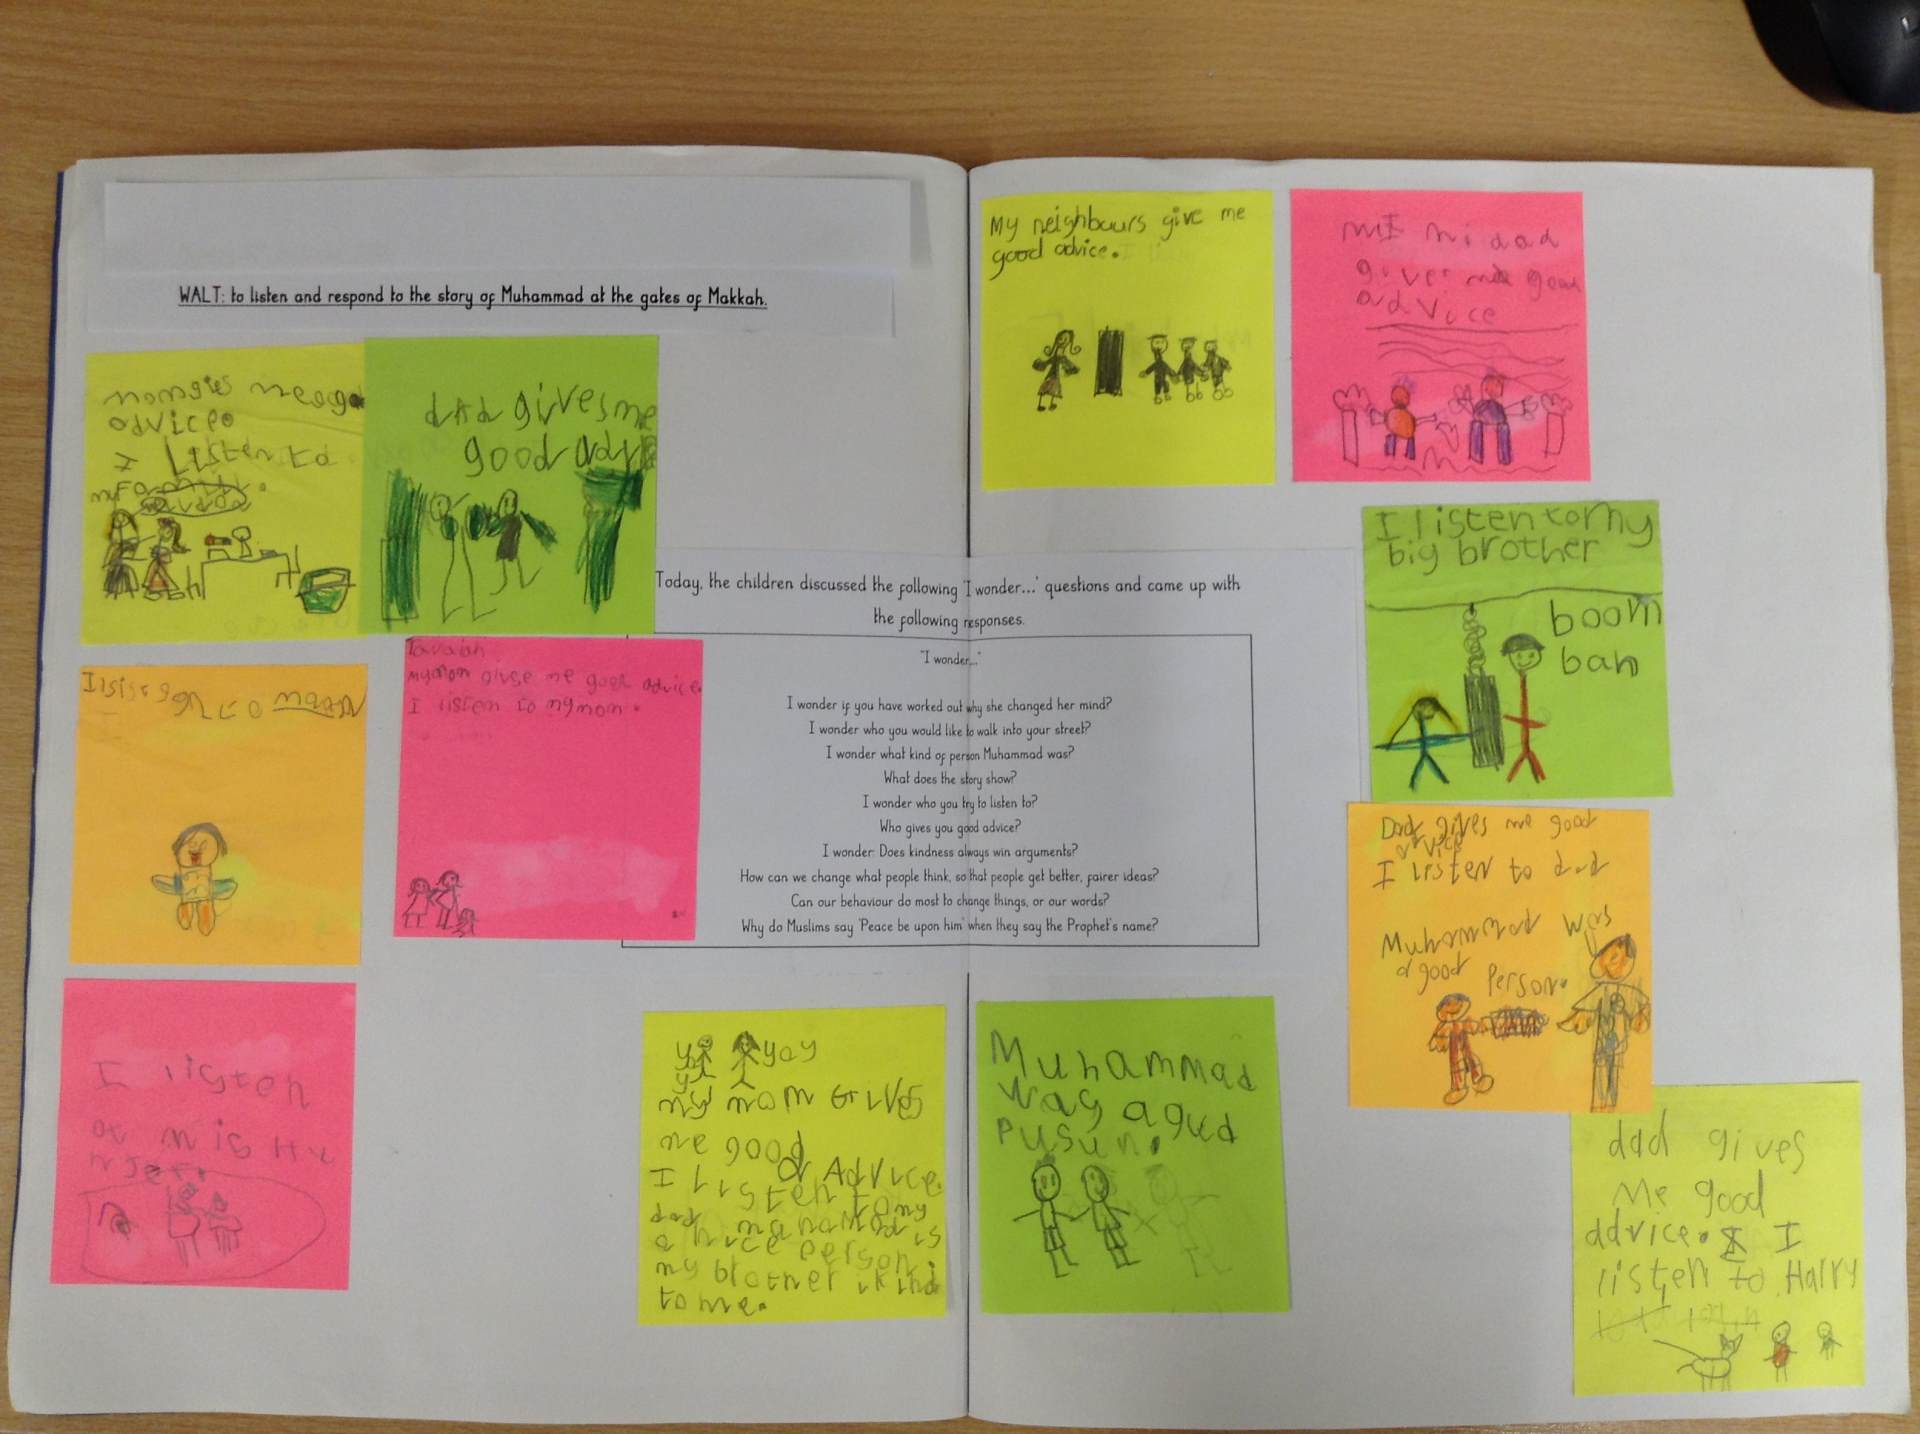 WALT: to listen and respond to the story of Muhammad at the gates of Makkah.
advice.
I Listen to
dAd gives me
good
I
Tavaiah
my mom givse me good advice.
I listen to my mom.
I listen
yay
my mom GiVes
me good
or AdVice.
I Listen to my
dad
a nice person
my brother is kind
to me.
Today, the children discussed the following 'I wonder...' questions and came up with
the following responses.
"I wonder..."
I wonder if you have worked out why she changed her mind?
I wonder who you would like to walk into your street?
I wonder what kind of person Muhammad was?
What does the story show?
I wonder who you try to listen to?
Who gives you good advice?
I wonder: Does kindness always win arguments?
How can we change what people think, so that people get better, fairer ideas?
Can our behaviour do most to change things, or our words?
Why do Muslims say 'Peace be upon him' when they say the Prophet's name?
My neighbours give me
good advice.
mi dad
good
adVice
I listen to my
big brother
boom
bah
Dad gives me good
advice
I listen to dad
Muhammad was
a good person.
Muhammad
was agud
pusun.
dad gives
me good
advice. I
listen to Harry